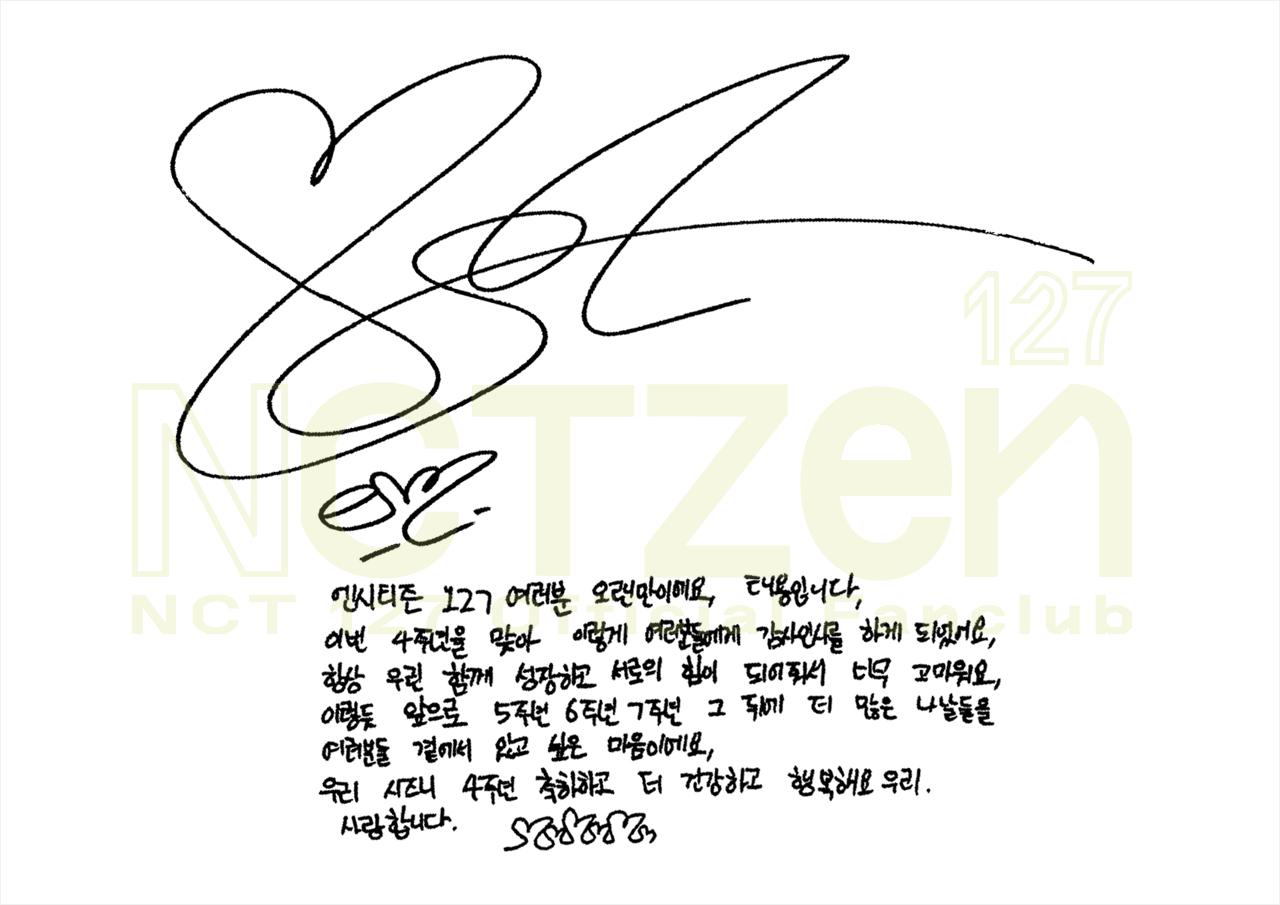 127
NCTzen
NCT 127 Official Fanclub
엔시티즌 127 여러분 오랜만이에요, 태용입니다,
이번 4주년을 맞아 이렇게 여러분들에게 감사인사를 하게 되었어요,
항상 우린 함께 성장하고 서로의 힘이 되어줘서 너무 고마워요,
이렇듯 앞으로 5주년 6주년 7주년 그 뒤에 더 많은 나날들을
여러분들 곁에서 있고 싶은 마음이에요,
우리 시즈니 4주년 축하하고 더 건강하고 행복해요 우리.
사랑합니다.